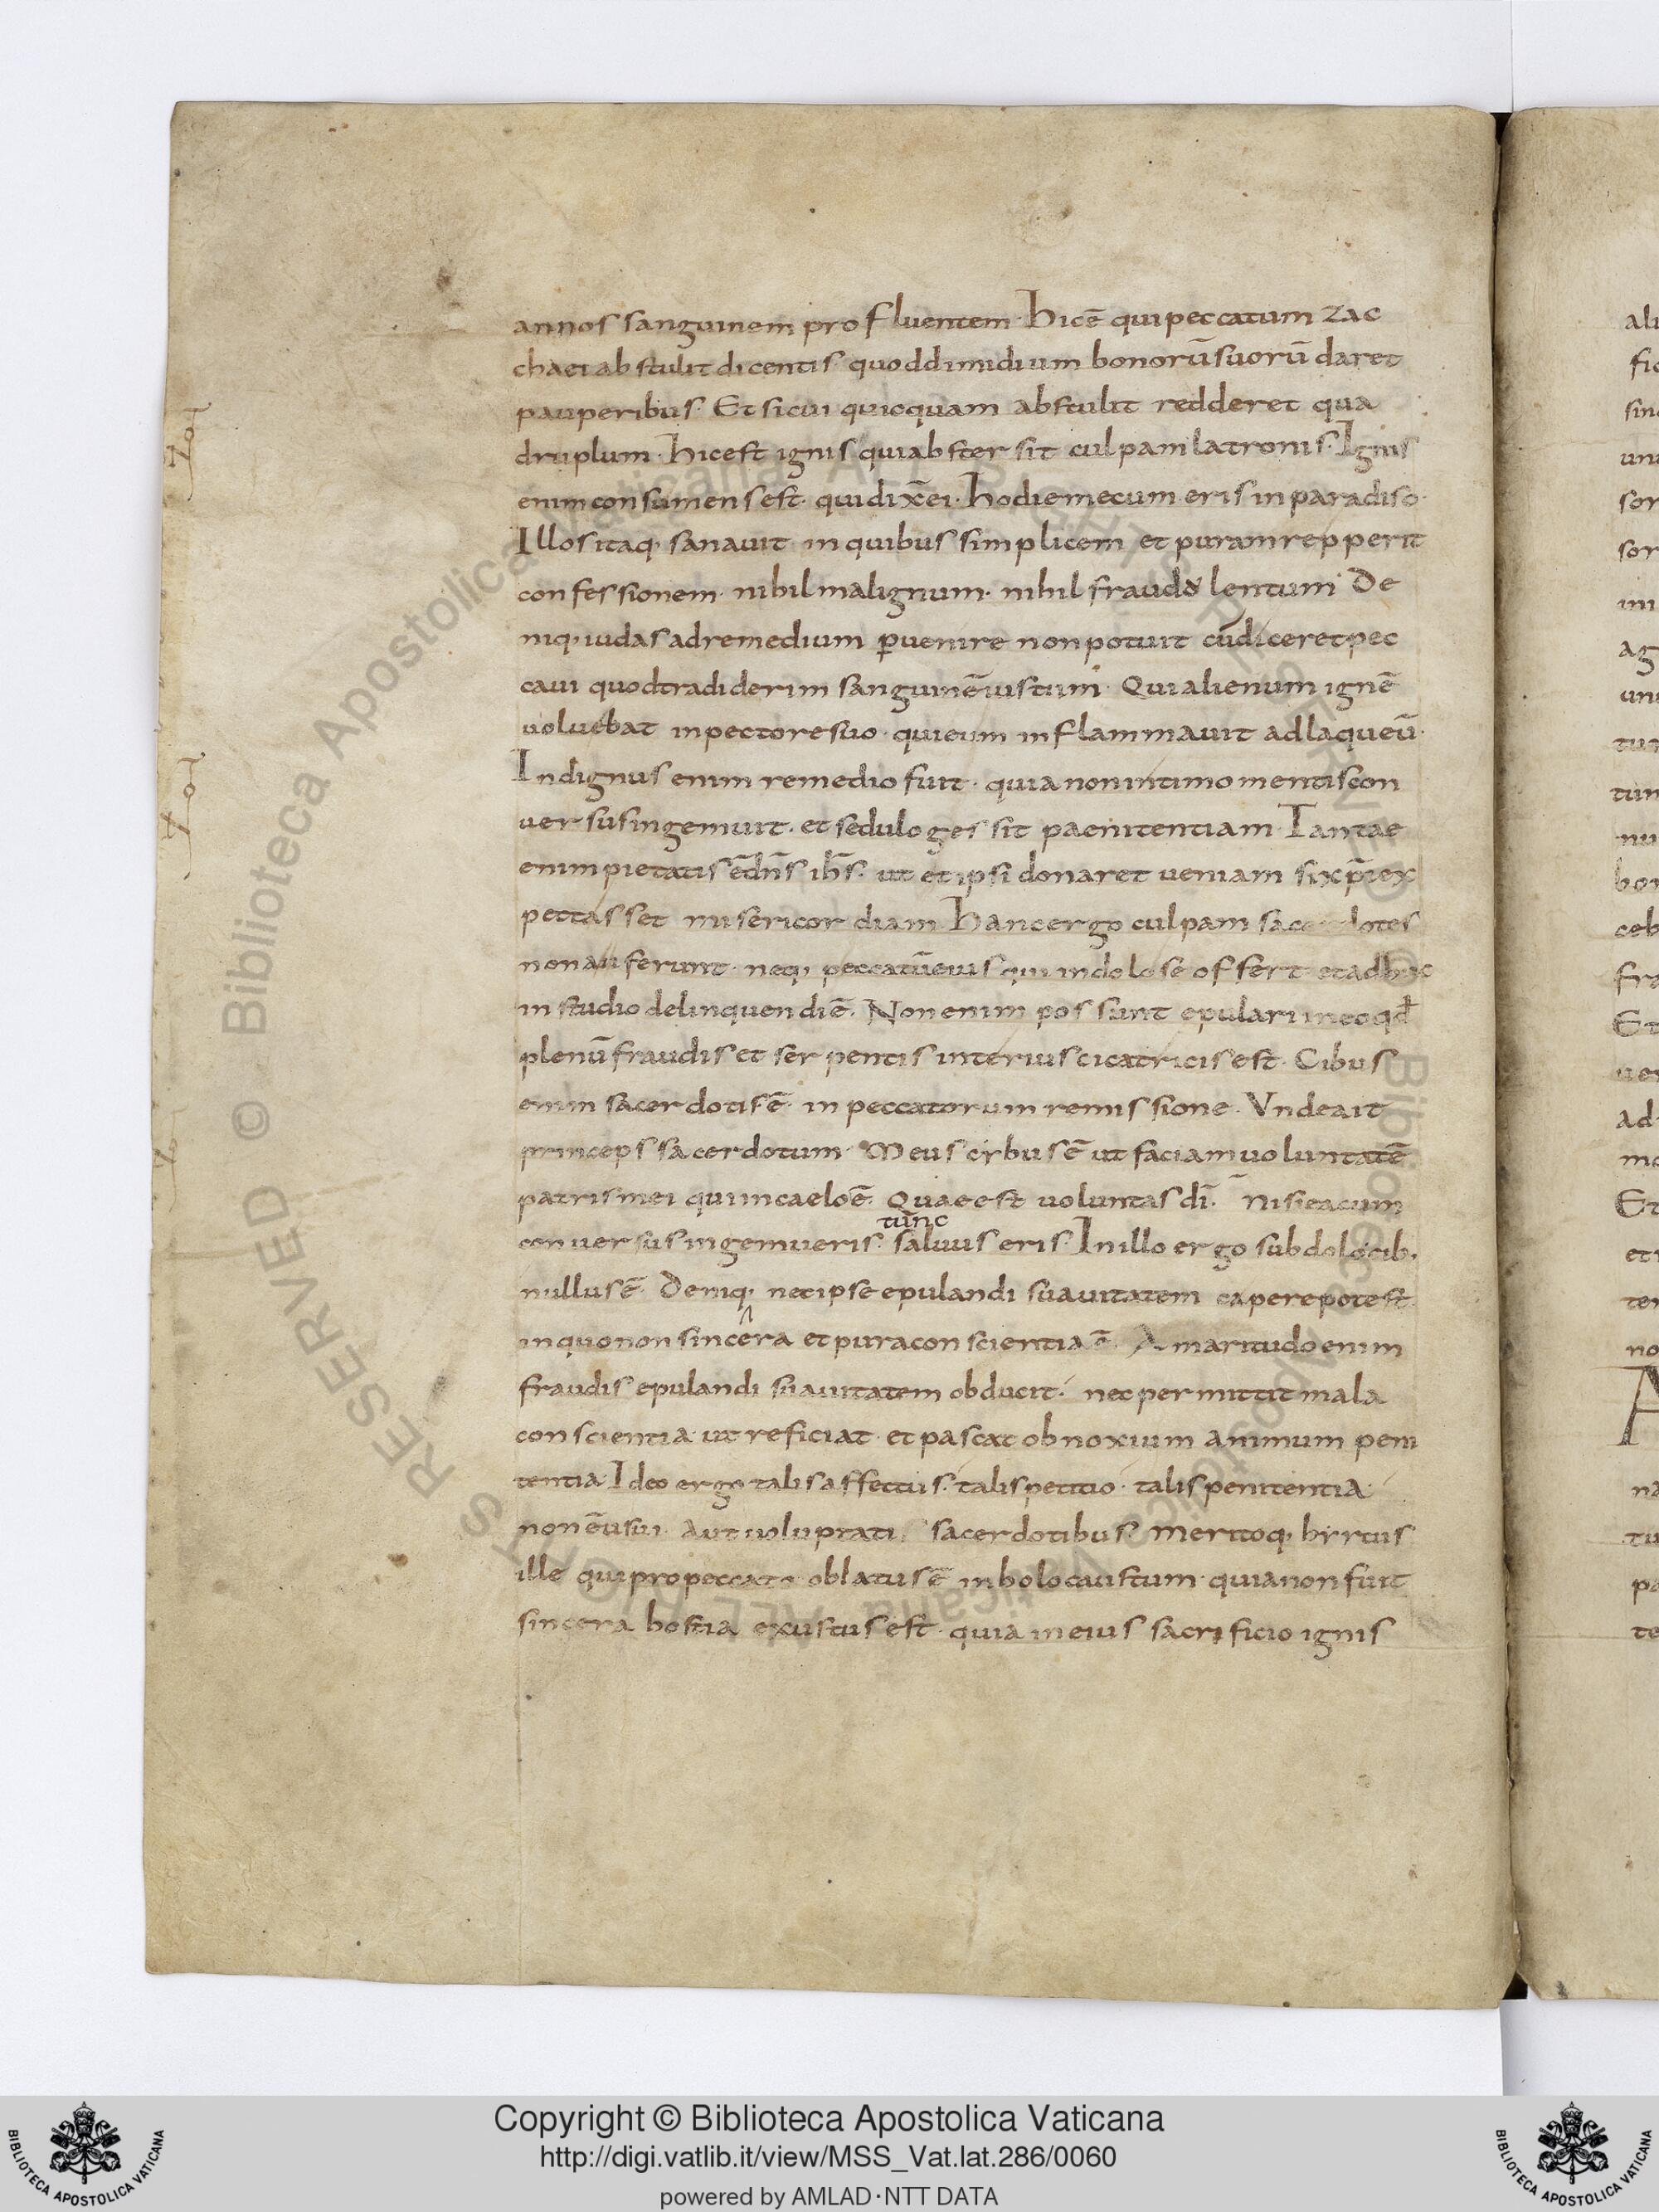 annos sanguinem profluentem· hic ē qui peccatum zac
chaei abstulit dicentis quod dimidium bonorū suorū daret
pauperibus· Et si cui quicquam abstulit redderet qua
druplum· hic est ignis qui abstersit culpam latronis· Ignis
enim consumens est· qui dix̄ ei· hodie mecum eris in paradiso·
Illos itaq· sanauit in quibus simplicem et puram repperit
confessionem· nihil malignum· nihil fraudolentum· De
niq· iudas ad remedium ꝑuenire non potuit cū diceret pec
caui quod tradiderim sanguinē iustum· Qui alienum ignē
voluebat in pectore suo· qui eum inflammauit ad laqueū·
Indignus enim remedio fuit· quia non intimo mentis con
uersus ingemuit· et sedulo gessit paenitentiam· Tantae
enim pietatis ē dn̄s ih̄s· ut et ipsi donaret ueniam si xp̄i ex
pectasset misericordiam· hanc ergo culpam sacerdotes
non auferunt· neq· peccatū eius qui in dolo se offert et adhuc
in studio delinquendi ē· Non enim possunt epulari in eo qđ
plenū fraudis et serpentis interius cicatricis est· Cibus
enim sacerdotis ē· in peccatorum remissione· Vnde ait
princeps sacerdotum· Meus cybus ē ut faciam uoluntatē
patris mei qui in caelo ē· Quae est uoluntas dī· nisi ea cum
tunc
conuersus ingemueris· saluus eris· In illo ergo subdolo cib·
nullus ē· Deniq· nec ipse epulandi suauitatem capere potest·
in quo non sincera et pura conscientia ē· Amaritudo enim
fraudis epulandi suauitatem obducit· nec permittit mala
conscientia ut reficiat· et pascat obnoxium animum peni
tentia· Ideo ergo talis affectus· talis petitio· talis penitentia
non ē usui· aut uoluptati sacerdotibus· Meritoq· hyrcus
ille qui pro peccato oblatus ē in holocaustum· quia non fuit
sincera hostia exustus est· quia in eius sacrificio ignis
Copyright © Biblioteca Apostolica Vaticana
http://digi.vatlib.it/view/MSS_Vat.lat.286/0060
powered by AMLAD·NTT DATA